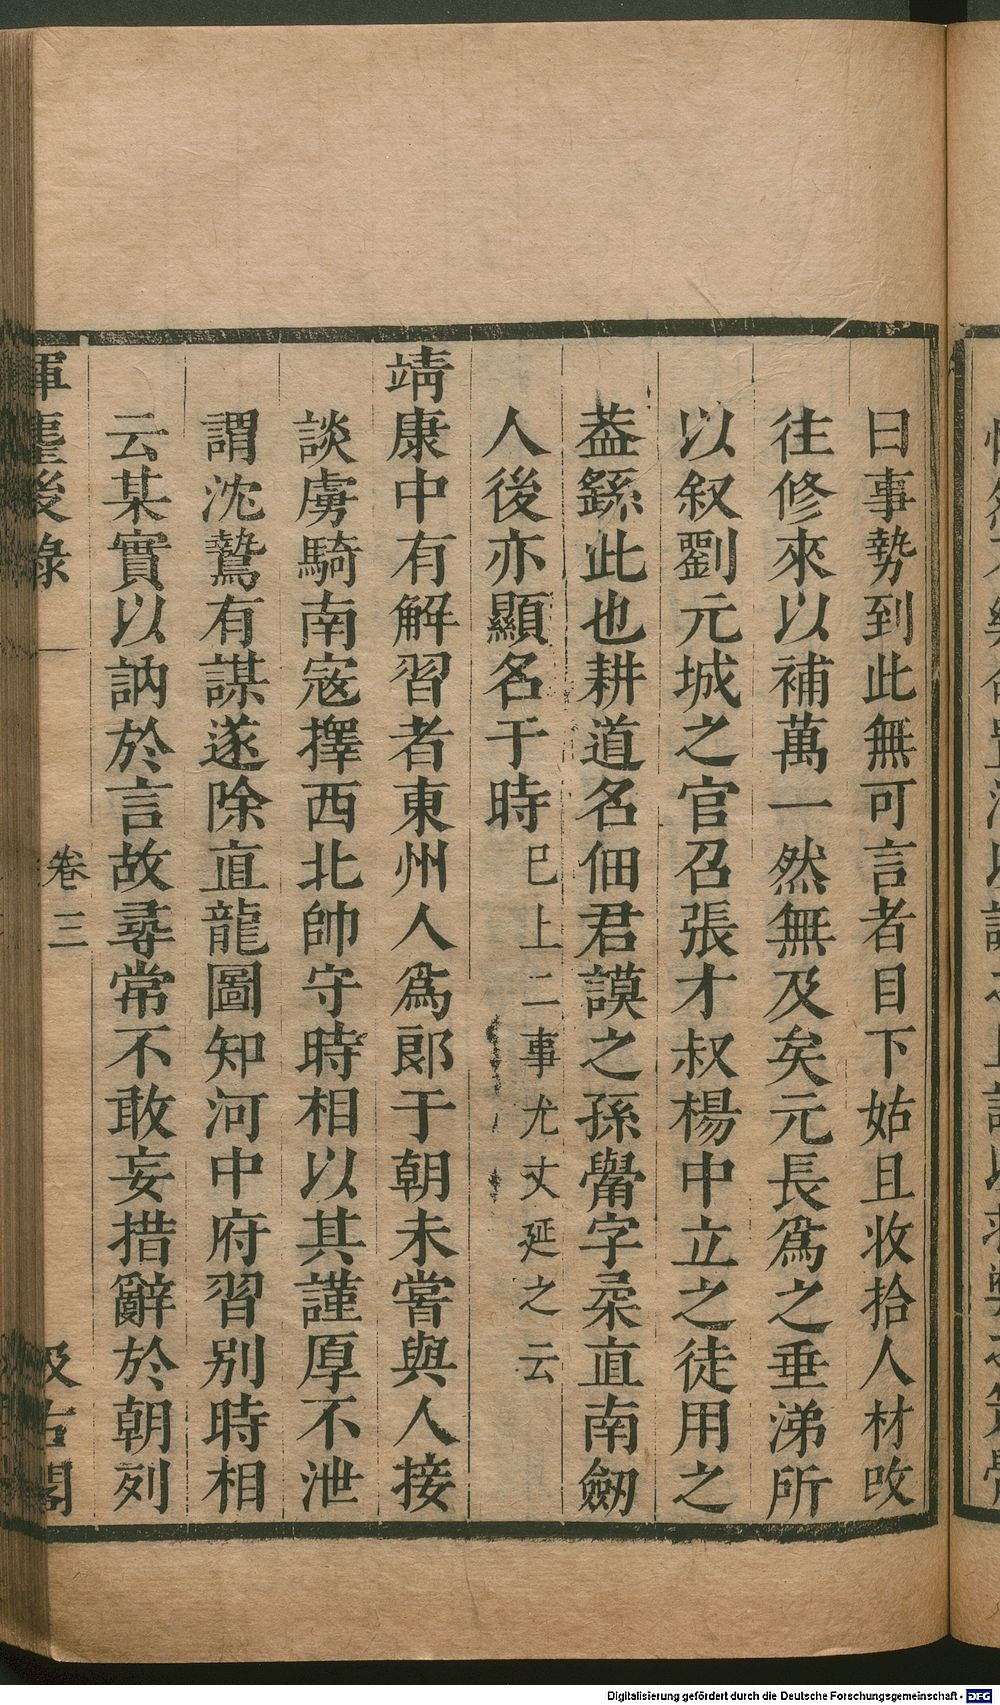 曰事勢到此無可言者目下姑且收拾人材攺
往修來以補萬一然無及矣元長爲之垂涕所
以叙劉元城之官召張才叔楊中立之徒用之
葢繇此也耕道名佃君謨之孫觷字柔直南劒
人後亦顯名于時巳上二事尤丈延之云
靖康中有解習者東州人爲郞于朝未嘗與人接
談虜騎南宼擇西北帥守時相以其謹厚不泄
謂沈鷙有謀遂除直龍圖知河中府習别時相
云某實以訥於言故尋常不敢妄措辭於朝列
揮麈後錄 卷三 汲古閣
Digitalisierung gefördert durch die Deutsche Forschungsgemeinschaft - DFG